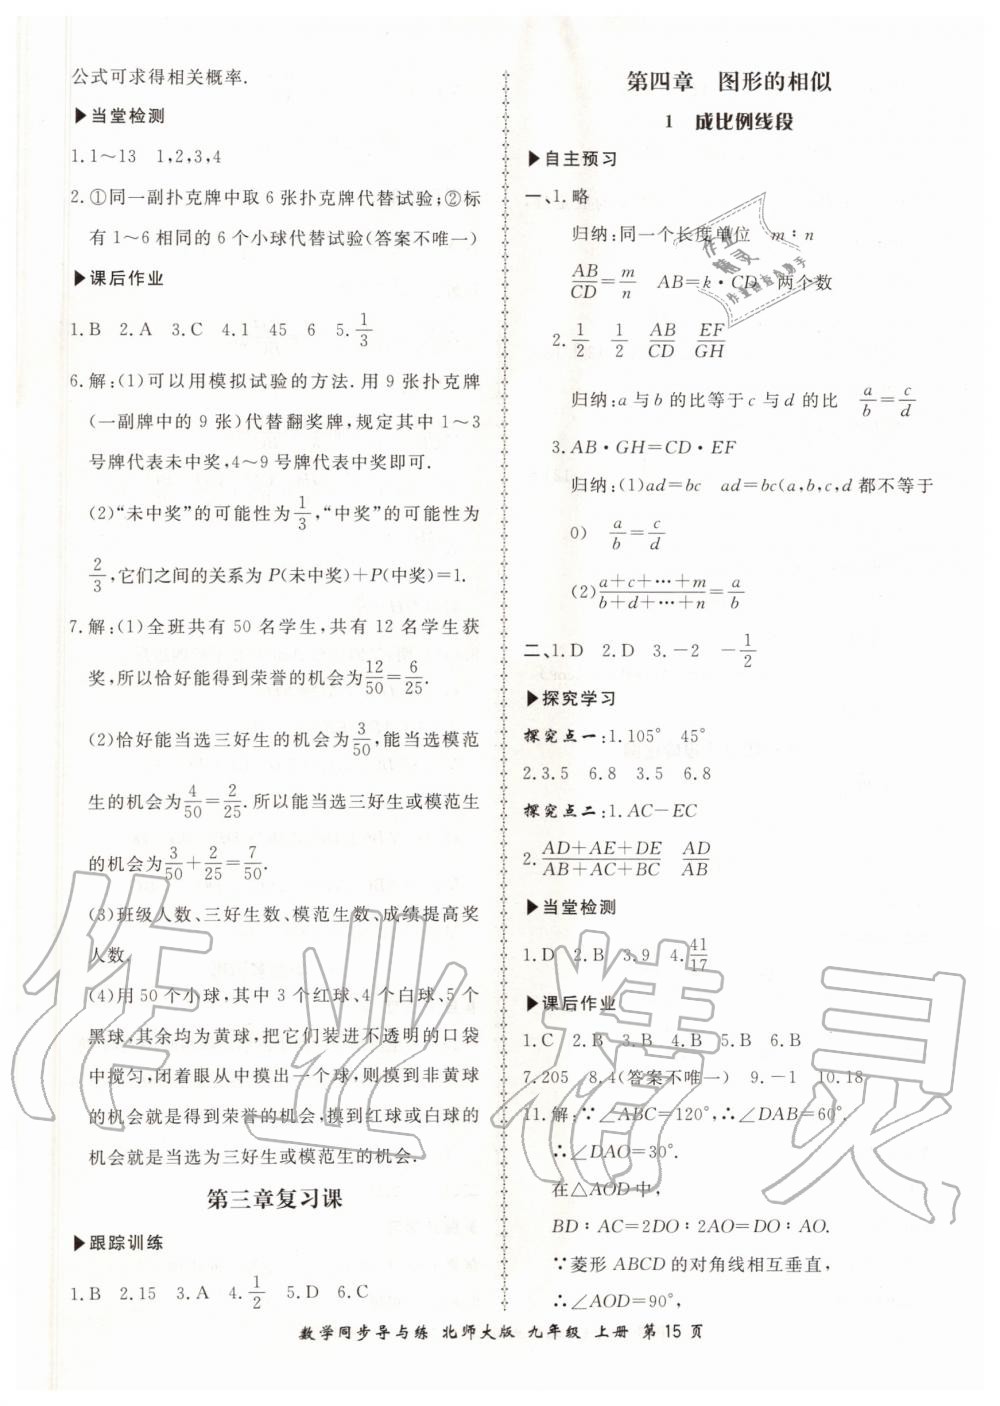 公式可求得相关概率.
▶当堂检测
1.1～13  1,2,3,4
2.①同一副扑克牌中取 6 张扑克牌代替试验;②标
有 1～6 相同的 6 个小球代替试验(答案不唯一)
▶课后作业
1.B  2.A  3.C  4.1  45  6  5.1/3
6.解:(1)可以用模拟试验的方法.用 9 张扑克牌
(一副牌中的 9 张)代替翻奖牌,规定其中 1～3
号牌代表未中奖,4～9 号牌代表中奖即可.
(2)“未中奖”的可能性为1/3,“中奖”的可能性为
2/3,它们之间的关系为 P(未中奖)+P(中奖)=1.
7.解:(1)全班共有 50 名学生,共有 12 名学生获
奖,所以恰好能得到荣誉的机会为12/50=6/25.
(2)恰好能当选三好生的机会为3/50,能当选模范
生的机会为4/50=2/25.所以能当选三好生或模范生
的机会为3/50+2/25=7/50.
(3)班级人数、三好生数、模范生数、成绩提高奖
人数.
(4)用 50 个小球,其中 3 个红球、4 个白球、5 个
黑球,其余均为黄球,把它们装进不透明的口袋
中搅匀,闭着眼从中摸出一个球,则摸到非黄球
的机会就是得到荣誉的机会,摸到红球或白球的
机会就是当选为三好生或模范生的机会.
第三章复习课
▶跟踪训练
1.B  2.15  3.A  4.1/2  5.D  6.C
第四章  图形的相似
1  成比例线段
▶自主预习
一、1.略
归纳:同一个长度单位  m∶n
AB/CD=m/n  AB=k·CD  两个数
2.1/2  1/2  AB/CD  EF/GH
归纳:a 与 b 的比等于 c 与 d 的比  a/b=c/d
3.AB·GH=CD·EF
归纳:(1)ad=bc  ad=bc(a,b,c,d 都不等于
0)  a/b=c/d
(2)(a+c+…+m)/(b+d+…+n)=a/b
二、1.D  2.D  3.-2  -1/2
▶探究学习
探究点一:1.105°  45°
2.3.5  6.8  3.5  6.8
探究点二:1.AC-EC
2.(AD+AE+DE)/(AB+AC+BC)  AD/AB
▶当堂检测
1.D  2.B  3.9  4.41/17
▶课后作业
1.C  2.B  3.B  4.B  5.B  6.B
7.205  8.4(答案不唯一)  9.-1  10.18
11.解:∵∠ABC=120°,∴∠DAB=60°.
∴∠DAO=30°.
在△AOD中,
BD∶AC=2DO∶2AO=DO∶AO.
∵菱形 ABCD 的对角线相互垂直,
∴∠AOD=90°,
数学同步导与练  北师大版  九年级  上册  第 15 页
作业
精灵
作业精灵